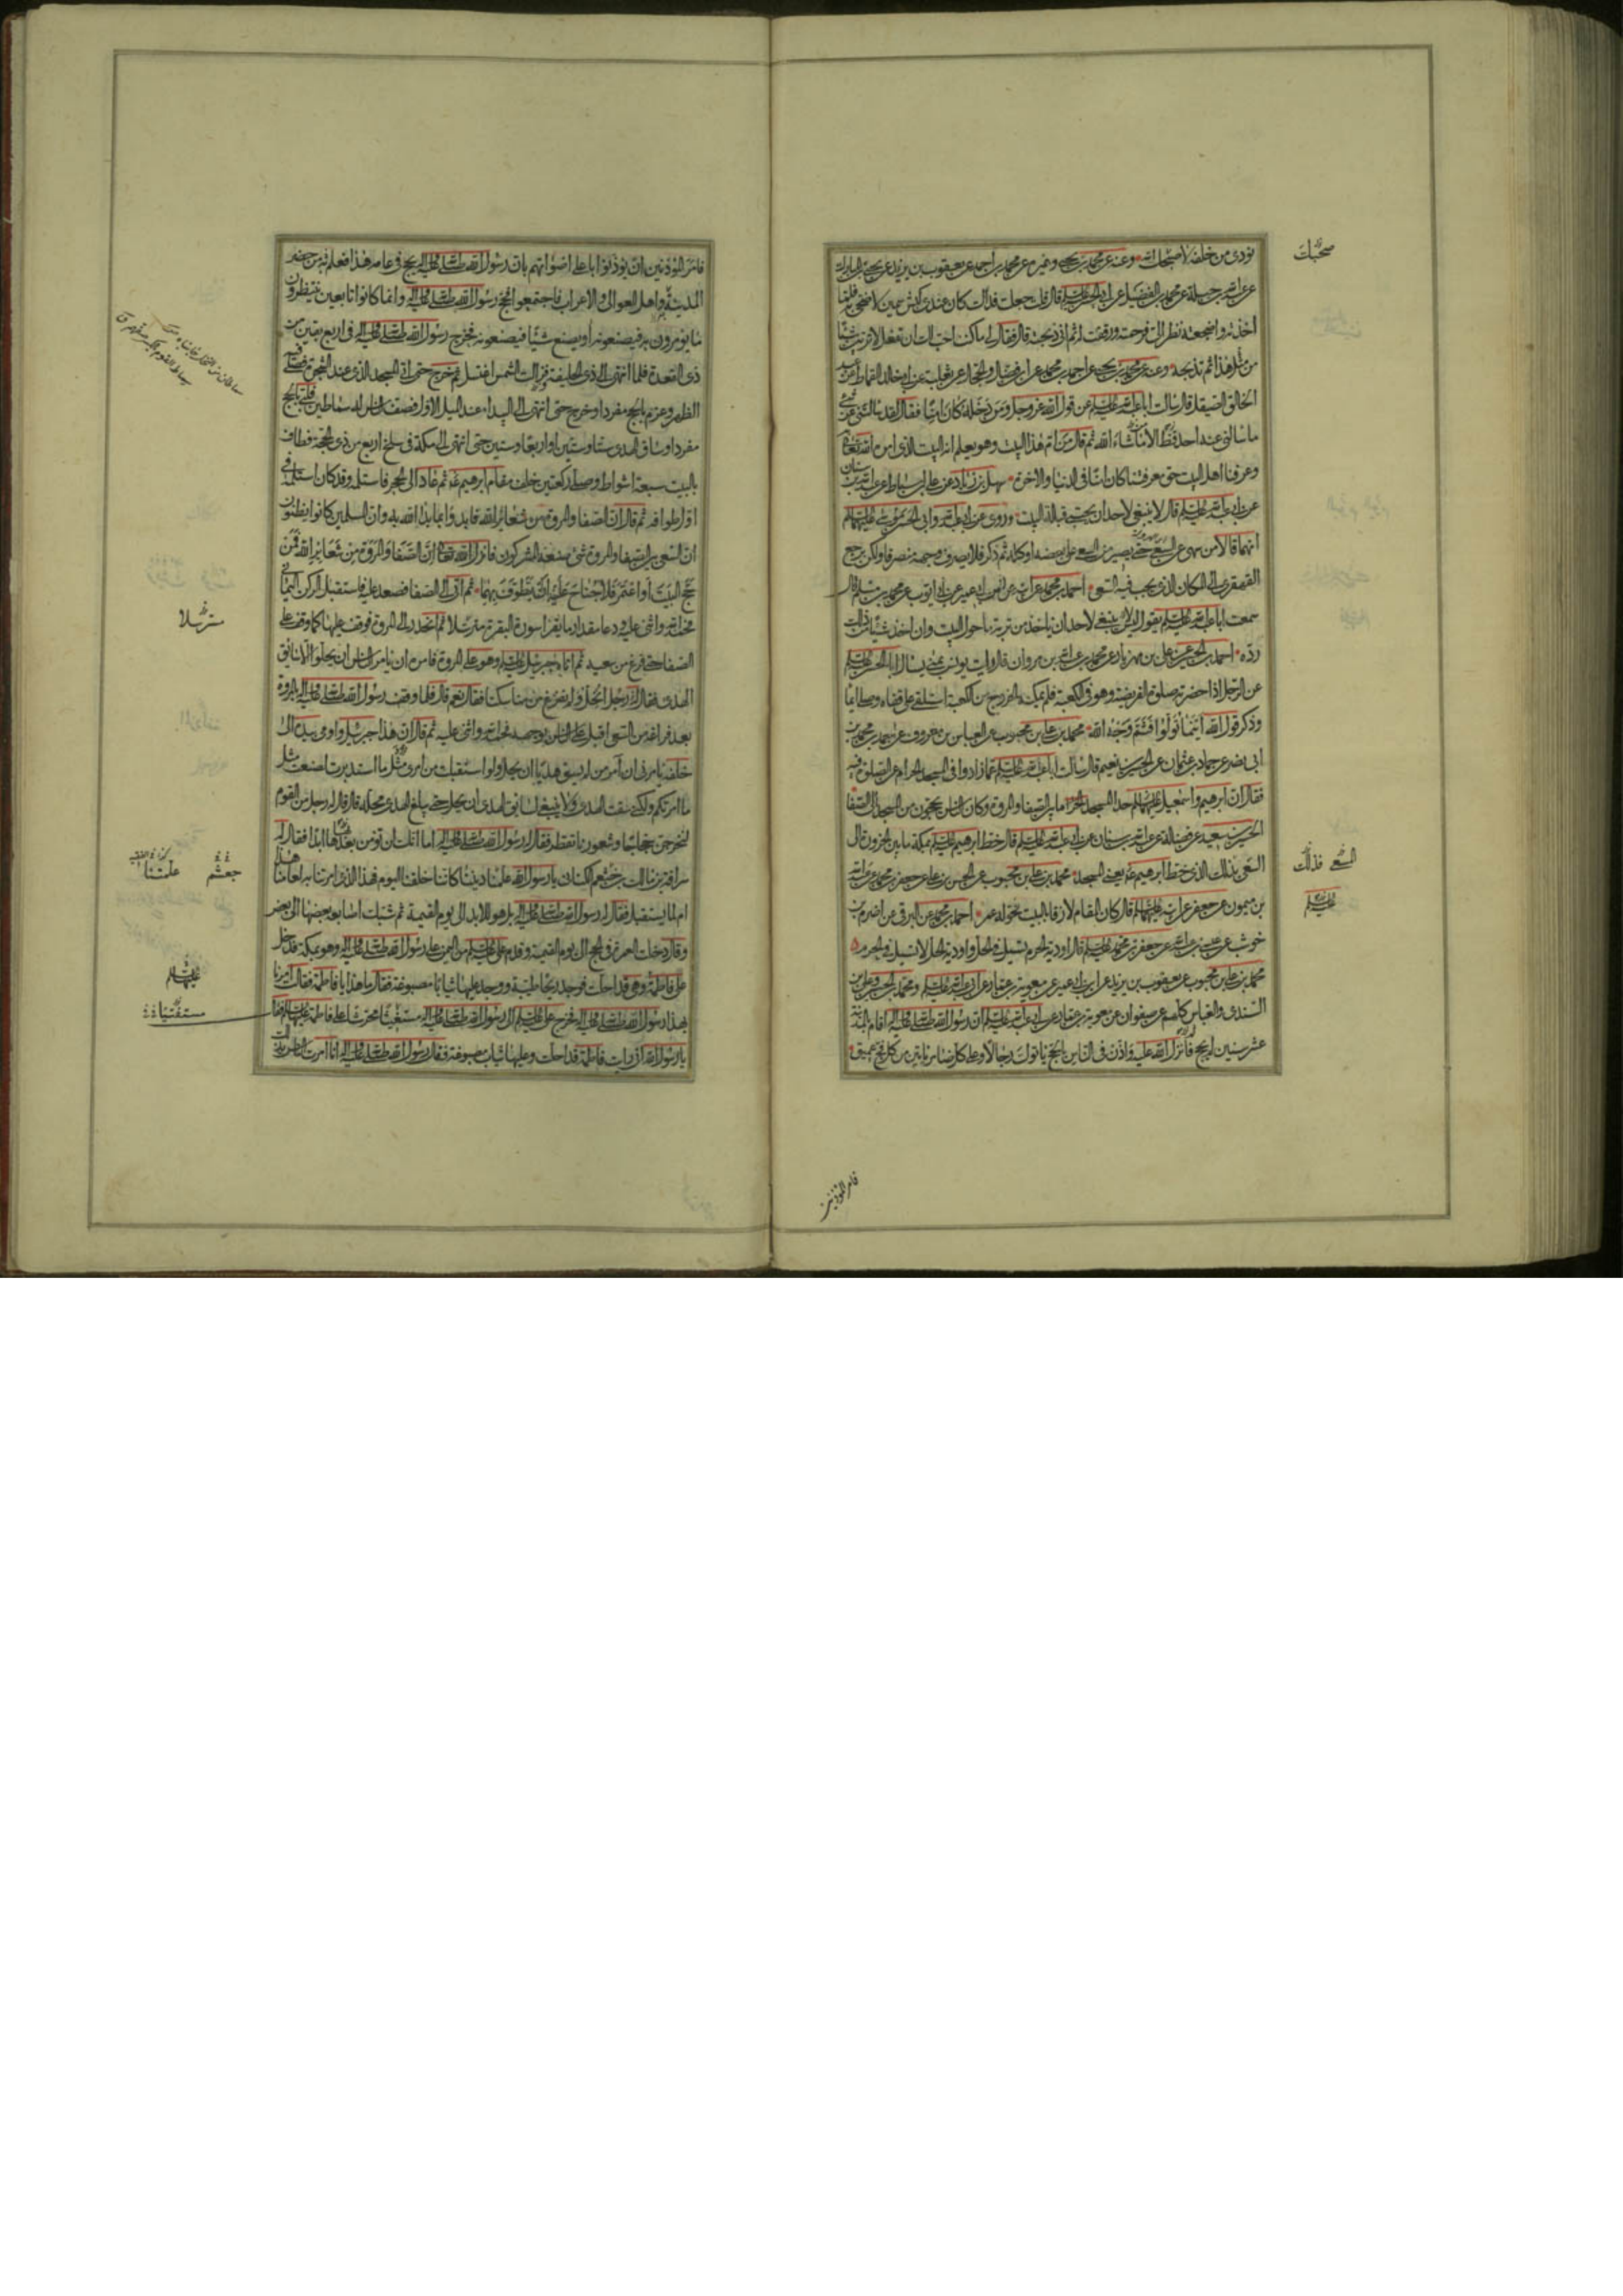 نودي من خلفه لا صحبك الله وعنه عن محمد بن يحيى وغيره عن محمد بن احمد عن يعقوب بن يزيد عن يحيى بن المبارك
عن عبد الله بن جبلة عن محمد بن الفضيل عن ابي الحسن عليه السلم قال قلت جعلت فداك كان عندي كبش سمين لاضحي به فلما
اخذته واضجعته نظر الي فرحمته ورققت له ثم اني ذبحته قال فقال لي ما كنت احب لك ان تفعل لا تربين شيئا
من مثل هذا ثم تذبحه وعنه عن محمد بن يحيى عن احمد بن محمد عن ابن فضال والحجال عن ثعلبة عن ابي خالد القماط عن عبد
الخالق الصيقل قال سالت ابا عبد الله عليه السلم عن قول الله عز وجل ومن دخله كان امنا فقال لقد سالتني عن شيء
ما سالني عنه احد قط الا من شاء الله ثم قال من ام هذا البيت وهو يعلم انه البيت الذي امر الله تعالى به
وعرفنا اهل البيت حق معرفتنا كان امنا في الدنيا والاخرة سهل بن زياد عن علي بن اسباط عن عبد الله بن سنان
عن ابي عبد الله عليه السلم قال لا ينبغي لاحد ان يحتبي قبالة البيت وروي عن ابي عبد الله وابي الحسن موسى عليهما السلم
انهما قالا من سهى عن السعي حتى يصير من السعي على بعضه او كله ثم ذكر فلا يصرف وجهه منصرفا ولكن يرجع
القهقرى الى المكان الذي يجب فيه السعي احمد بن محمد عن ابن ابي عمير عن ابي ايوب عن محمد بن مسلم قال
سمعت ابا عبد الله عليه السلم يقول لا ينبغي لاحد ان ياخذ من تربة ما حول البيت وان اخذ شيئا من ذلك
رده احمد بن الحسين عن علي بن مهزيار عن محمد بن عبد الله بن مروان قال رايت يونس بمنى يسال ابا الحسن عليه السلم
عن الرجل اذا حضرته صلوة الفريضة وهو في الكعبة فلم يمكنه الخروج من الكعبة استلقى على قفاه وصلى ايماء
وذكر قول الله اينما تولوا فثم وجه الله محمد بن علي بن محبوب عن العباس بن معروف عن احمد بن محمد بن
ابي نصر عن حماد بن عثمان عن الحسين بن نعيم قال سالت ابا عبد الله عليه السلم عما زادوا في المسجد الحرام عن الصلوة فيه
فقال ان ابرهيم واسمعيل عليهما السلم حدا المسجد الحرام ما بين الصفا والمروة وكان الناس يحجون من المسجد الى الصفا
الحسين بن سعيد عن فضالة عن عبد الله بن سنان عن ابي عبد الله عليه السلم قال خط ابرهيم عليه السلم بمكة ما بين الحزورة الى
السعي بذلك الذي خط ابرهيم يعني المسجد محمد بن علي بن محبوب عن الحسن بن علي عن جعفر بن محمد عن عبد الله
بن ميمون عن جعفر عن ابيه عليهما السلم قال كان المقام لازقا بالبيت فحوله عمر احمد بن محمد عن البرقي عن
عن جعفر بن محمد عليه السلم قال اودية الحرم تسيل في الحل واودية الحل لا تسيل في الحرم
محمد بن علي بن محبوب عن يعقوب بن يزيد عن ابن ابي عمير عن معوية بن عمار عن ابي عبد الله عليه السلم ومحمد بن الحسين وعلي بن
السندي والعباس كلهم عن صفوان عن معوية بن عمار عن ابي عبد الله عليه السلم ان رسول الله صلى الله عليه واله اقام بالمدينة
عشر سنين لم يحج فانزل الله عليه واذن في الناس بالحج ياتوك رجالا وعلى كل ضامر ياتين من كل فج عميق
صحبك
السعي فذلك
عليه السلم
فامر المؤذنين
فامر المؤذنين ان يؤذنوا باعلى اصواتهم بان رسول الله صلى الله عليه واله يحج في عامه هذا فعلم به من حضر
المدينة واهل العوالي والاعراب فاجتمعوا لحج رسول الله صلى الله عليه واله وانما كانوا تابعين ينتظرون
ما يؤمرون به فيصنعونه او يصنع شيئا فيصنعونه فخرج رسول الله صلى الله عليه واله في اربع بقين من
ذي القعدة فلما انتهى الى ذي الحليفة فزالت الشمس اغتسل ثم خرج حتى اتى المسجد الذي عند الشجرة فصلى فيه
الظهر وعزم بالحج مفردا وخرج حتى انتهى الى البيداء عند الميل الاول فصف الناس له سماطين فلبى بالحج
مفردا وساق الهدي ستا وستين او اربعا وستين حتى انتهى الى مكة في سلخ اربع من ذي الحجة فطاف
بالبيت سبعة اشواط وصلى ركعتين خلف مقام ابرهيم ثم عاد الى الحجر فاستلمه وقد كان استلمه في
اول طوافه ثم قال ان الصفا والمروة من شعائر الله فابدؤا بما بدا الله به وان المسلمين كانوا يظنون
ان السعي بين الصفا والمروة شيء صنعه المشركون فانزل الله تعالى ان الصفا والمروة من شعائر الله فمن
حج البيت او اعتمر فلا جناح عليه ان يطوف بهما ثم اتى الى الصفا فصعد عليه فاستقبل الركن اليماني
فحمد الله واثنى عليه ودعا مقدار ما يقرا سورة البقرة مترسلا ثم انحدر الى المروة فوقف عليها كما وقف على
الصفا حتى فرغ من سعيه ثم اتاه جبرئيل عليه السلم وهو على المروة فامره ان يامر الناس ان يحلوا الا سائق
الهدي فقال له رجل انحل ولم نفرغ من مناسكنا فقال نعم قال فلما وقف رسول الله صلى الله عليه واله بالمروة
بعد فراغه من السعي اقبل على الناس بوجهه فحمد الله واثنى عليه ثم قال ان هذا جبرئيل واومى بيده الى
خلفه يامرني ان آمر من لم يسق هديا ان يحل ولو استقبلت من امري مثل ما استدبرت لصنعت مثل
ما امرتكم ولكني سقت الهدي ولا ينبغي لسائق الهدي ان يحل حتى يبلغ الهدي محله قال قال له رجل من القوم
لنخرجن حجاجا وشعورنا تقطر فقال له رسول الله صلى الله عليه واله اما انك لن تؤمن بعدها ابدا فقال له
سراقة بن مالك بن خثعم الكناني يا رسول الله علمنا ديننا كاننا خلقنا اليوم فهذا الذي امرتنا به لعامنا هذا
ام لما يستقبل فقال له رسول الله صلى الله عليه واله بل هو للابد الى يوم القيمة ثم شبك اصابعه بعضها الى بعض
وقال دخلت العمرة في الحج الى يوم القيمة وقدم علي عليه السلم من اليمن على رسول الله صلى الله عليه واله وهو بمكة فدخل
على فاطمة وهي قد احلت فوجد ريحا طيبة ووجد عليها ثيابا مصبوغة فقال ما هذا يا فاطمة فقالت امرنا
بهذا رسول الله صلى الله عليه واله فخرج علي عليه السلم الى رسول الله صلى الله عليه واله مستفتيا محرشا على فاطمة عليها السلم فقال
يا رسول الله اني رايت فاطمة قد احلت وعليها ثياب مصبوغة فقال رسول الله صلى الله عليه واله انا امرت الناس بذلك
مترسلا
جعشم
علمتنا
عليها السلم
مستفتيا